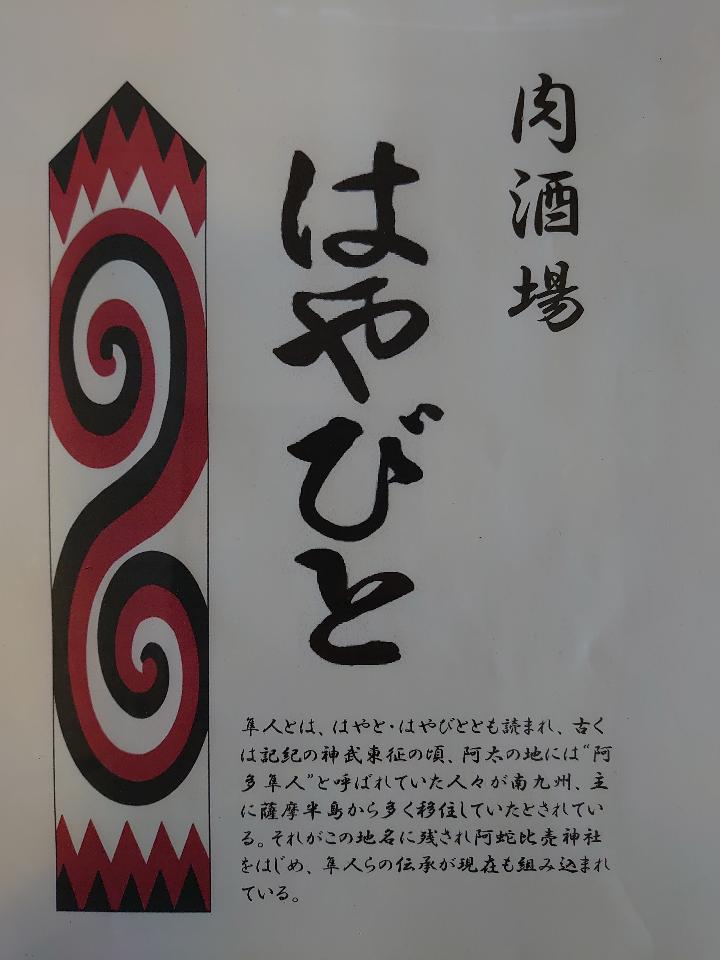 肉酒場
はやびと
隼人とは、はやと・はやびととも読まれ、古く
は記紀の神武東征の頃、阿太の地には“阿
多隼人”と呼ばれていた人々が南九州、主
に薩摩半島から多く移住していたとされてい
る。それがこの地名に残され阿蛇比売神社
をはじめ、隼人らの伝承が現在も組み込まれ
ている。